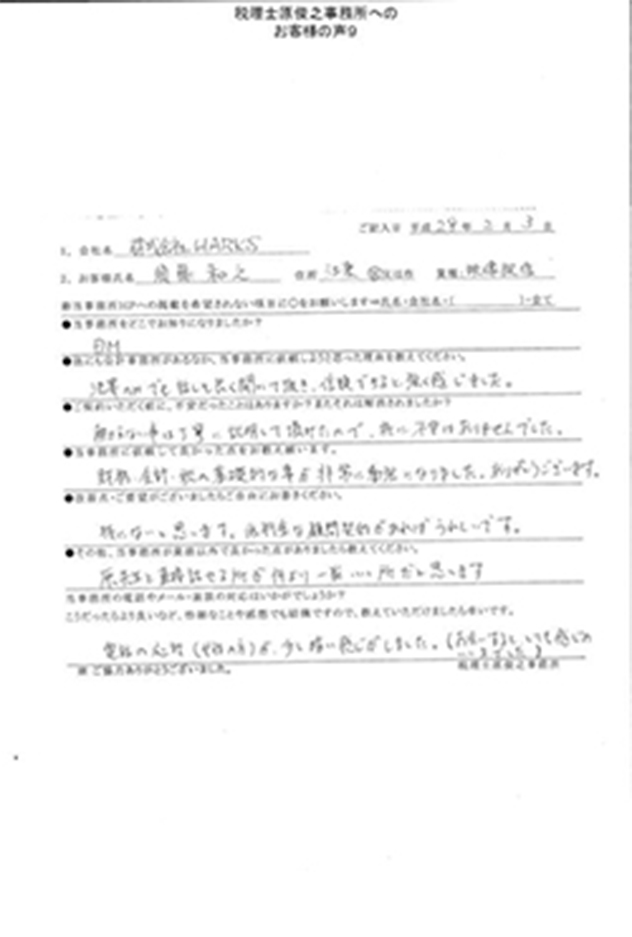 税理士原俊之事務所への
お客様の声9
ご記入日 平成29年2月3日
1、会社名 株式会社HARKS
2、お客様氏名 和之 住所 江東 業種:映像製作
●当事務所をどこでお知りになりましたか?
DM
●他にも会計事務所があるなか、当事務所に依頼しようと思った理由を教えてください。
でも話しも良く聞いて頂き、信頼できると強く感じました。
●ご契約いただく前に、不安だったことはありますか?またそれは解消されましたか?
事は丁寧に説明して頂けたので、特に不安はありませんでした。
●当事務所に依頼して良かった点をお教え願います。
財務・会計・税の基礎的な事が非常に勉強になりました。ありがとうございます。
●改善点・ご要望がございましたらご自由にお書きください。
特にないと思います。低料金な顧問契約があればうれしいです。
●その他、当事務所が業務以外で良かった点がありましたら教えてください。
原先生と直接話せる所が何より一番いい所だと思います
当事務所の電話やメール・面談の対応はいかがでしょうか?
こうだったらより良いなど、些細なことや感想でも結構ですので、教えていただけましたら幸いです。
電話の応対(女性の方)が、少し暗い感じがしました。
ご協力ありがとうございました。 税理士原俊之事務所